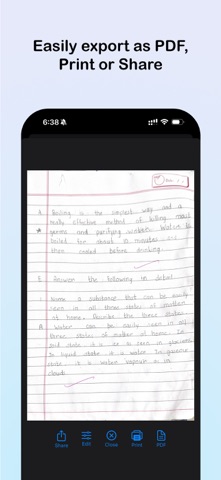 Easily export as PDF,
Print or Share
6:38
A. Boiling is the simplest way and a
really effective method of killing most
germs and purifying water. Water is
boiled for about 10 minutes and
then cooled before drinking.
E. Answer the following in detail
1. Name a substance that can be easily
seen in all three states of matter
at home. Describe the three states.
A. Water can be easily seen in all
three states of matter at home. In
solid state it is
In liquid state it is water. In gaseous
state it is water vapour
clouds
Share
Edit
Close
Print
PDF